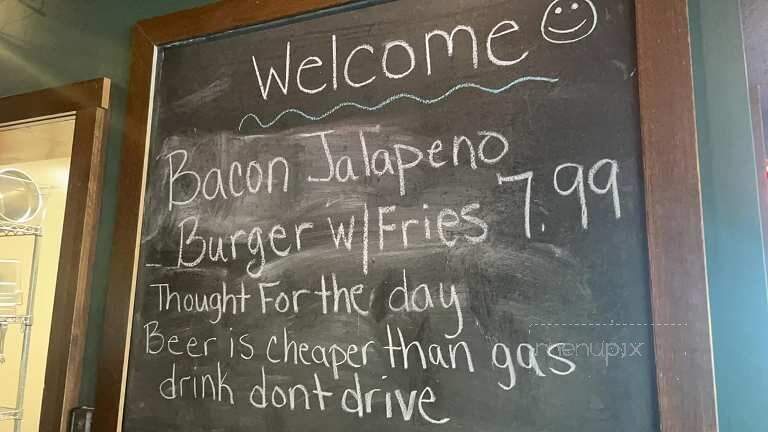 Welcome
Bacon Jalapeno
Burger w/Fries 7.99
Thought For the day
Beer is cheaper than gas
drink dont drive
menupix